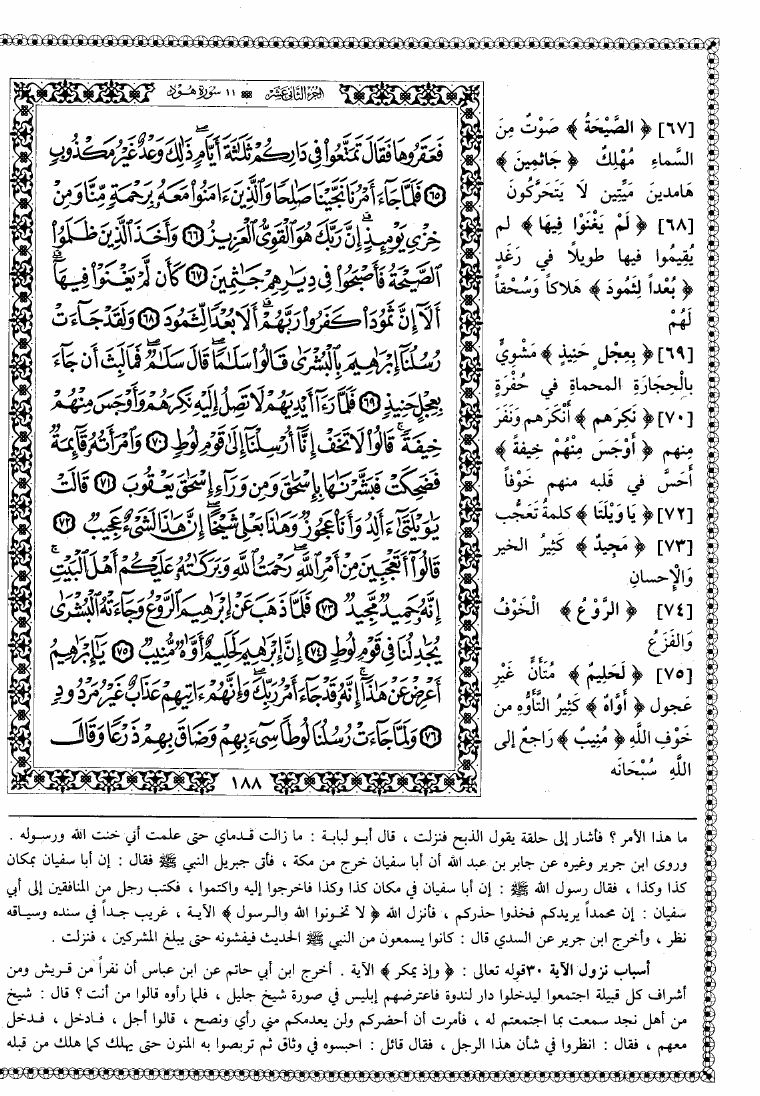 الجزء الثاني عشر ١١ سورة هود
فَعَقَرُوهَا فَقَالَ تَمَتَّعُوا۟ فِى دَارِكُمْ ثَلَٰثَةَ أَيَّامٍ ذَٰلِكَ وَعْدٌ غَيْرُ مَكْذُوبٍ
٦٥ فَلَمَّا جَآءَ أَمْرُنَا نَجَّيْنَا صَٰلِحًا وَٱلَّذِينَ ءَامَنُوا۟ مَعَهُۥ بِرَحْمَةٍ مِّنَّا وَمِنْ
خِزْىِ يَوْمِئِذٍ إِنَّ رَبَّكَ هُوَ ٱلْقَوِىُّ ٱلْعَزِيزُ ٦٦ وَأَخَذَ ٱلَّذِينَ ظَلَمُوا۟
ٱلصَّيْحَةُ فَأَصْبَحُوا۟ فِى دِيَٰرِهِمْ جَٰثِمِينَ ٦٧ كَأَن لَّمْ يَغْنَوْا۟ فِيهَآ
أَلَآ إِنَّ ثَمُودَا۟ كَفَرُوا۟ رَبَّهُمْ أَلَا بُعْدًا لِّثَمُودَ ٦٨ وَلَقَدْ جَآءَتْ
رُسُلُنَآ إِبْرَٰهِيمَ بِٱلْبُشْرَىٰ قَالُوا۟ سَلَٰمًا قَالَ سَلَٰمٌ فَمَا لَبِثَ أَن جَآءَ
بِعِجْلٍ حَنِيذٍ ٦٩ فَلَمَّا رَءَآ أَيْدِيَهُمْ لَا تَصِلُ إِلَيْهِ نَكِرَهُمْ وَأَوْجَسَ مِنْهُمْ
خِيفَةً قَالُوا۟ لَا تَخَفْ إِنَّآ أُرْسِلْنَآ إِلَىٰ قَوْمِ لُوطٍ ٧٠ وَٱمْرَأَتُهُۥ قَآئِمَةٌ
فَضَحِكَتْ فَبَشَّرْنَٰهَا بِإِسْحَٰقَ وَمِن وَرَآءِ إِسْحَٰقَ يَعْقُوبَ ٧١ قَالَتْ
يَٰوَيْلَتَىٰٓ ءَأَلِدُ وَأَنَا۠ عَجُوزٌ وَهَٰذَا بَعْلِى شَيْخًا إِنَّ هَٰذَا لَشَىْءٌ عَجِيبٌ ٧٢
قَالُوٓا۟ أَتَعْجَبِينَ مِنْ أَمْرِ ٱللَّهِ رَحْمَتُ ٱللَّهِ وَبَرَكَٰتُهُۥ عَلَيْكُمْ أَهْلَ ٱلْبَيْتِ
إِنَّهُۥ حَمِيدٌ مَّجِيدٌ ٧٣ فَلَمَّا ذَهَبَ عَنْ إِبْرَٰهِيمَ ٱلرَّوْعُ وَجَآءَتْهُ ٱلْبُشْرَىٰ
يُجَٰدِلُنَا فِى قَوْمِ لُوطٍ ٧٤ إِنَّ إِبْرَٰهِيمَ لَحَلِيمٌ أَوَّٰهٌ مُّنِيبٌ ٧٥ يَٰٓإِبْرَٰهِيمُ
أَعْرِضْ عَنْ هَٰذَآ إِنَّهُۥ قَدْ جَآءَ أَمْرُ رَبِّكَ وَإِنَّهُمْ ءَاتِيهِمْ عَذَابٌ غَيْرُ مَرْدُودٍ
٧٦ وَلَمَّا جَآءَتْ رُسُلُنَا لُوطًا سِىٓءَ بِهِمْ وَضَاقَ بِهِمْ ذَرْعًا وَقَالَ
١٨٨
[٦٧] ﴿ الصَّيْحَةُ ﴾ صَوْتٌ مِنَ
السَّماءِ مُهْلِكٌ ﴿ جَاثِمِينَ ﴾
هَامدينَ مَيِّتِين لَا يَتَحَرَّكُونَ
[٦٨] ﴿ لَمْ يَغْنَوْا فِيهَا ﴾ لم
يُقِيمُوا فيها طويلًا في رَغَدٍ
﴿ بُعْداً لِثَمُودَ ﴾ هَلاكاً وَسُحْقاً
لَهُمْ
[٦٩] ﴿ بِعِجْلٍ حَنِيذٍ ﴾ مَشْوِيٍّ
بالْحِجَارَةِ المحماةِ في حُفْرَةٍ
[٧٠] ﴿ نَكِرَهم ﴾ أَنْكَرَهم وَنَفَرَ
منهم ﴿ أَوْجَسَ مِنْهُمْ خِيفةً ﴾
أَحَسَّ في قَلبه منهم خَوْفاً
[٧٢] ﴿ يَاوَيْلَتَا ﴾ كلمةُ تَعَجُّب
[٧٣] ﴿ مَجِيدٌ ﴾ كَثِيرُ الخير
وَالإحسانِ
[٧٤] ﴿ الرَّوْعُ ﴾ الْخَوْفُ
وَالفَزَعُ
[٧٥] ﴿ لَحَلِيمٌ ﴾ مُتَأَنٍّ غَيْرِ
عَجول ﴿ أَوَّاهٌ ﴾ كَثِيرُ التَّأَوُّهِ من
خَوْفِ اللَّهِ ﴿ مُنِيبٌ ﴾ رَاجعٌ إلى
اللَّهِ سُبْحَانَه
ما هذا الأمر ؟ فأشار إلى حلقة يقول الذبح فنزلت ، قال أبو لبابة : ما زالت قدماي حتى علمت أني خنت الله ورسوله .
وروى ابن جرير وغيره عن جابر بن عبد الله أن أبا سفيان خرج من مكة ، فأتى جبريل النبي ﷺ فقال : إن أبا سفيان بمكان
كذا وكذا ، فقال رسول الله ﷺ : إن أبا سفيان في مكان كذا وكذا فاخرجوا إليه واكتموا ، فكتب رجل من المنافقين إلى أبي
سفيان : إن محمداً يريدكم فخذوا حذركم ، فأنزل الله ﴿ لا تخونوا الله والرسول ﴾ الآية ، غريب جداً في سنده وسياقه
نظر ، وأخرج ابن جرير عن السدي قال : كانوا يسمعون من النبي ﷺ الحديث فيفشونه حتى يبلغ المشركين ، فنزلت .
أسباب نزول الآية ٣٠ قوله تعالى : ﴿ وإذ يمكر ﴾ الآية . أخرج ابن أبي حاتم عن ابن عباس أن نفراً من قريش ومن
أشراف كل قبيلة اجتمعوا ليدخلوا دار لندوة فاعترضهم إبليس في صورة شيخ جليل ، فلما رأوه قالوا من أنت ؟ قال : شيخ
من أهل نجد سمعت بما اجتمعتم له ، فأمرت أن أحضركم ولن يعدمكم مني رأي ونصح ، قالوا أجل ، فادخل ، فدخل
معهم ، فقال : انظروا في شأن هذا الرجل ، فقال قائل : احبسوه في وثاق ثم تربصوا به المنون حتى يهلك كما هلك من قبله